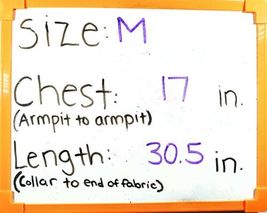 Size: M
Chest: 17 in.
(Armpit to armpit)
Length: 30.5 in.
(Collar to end of fabric)